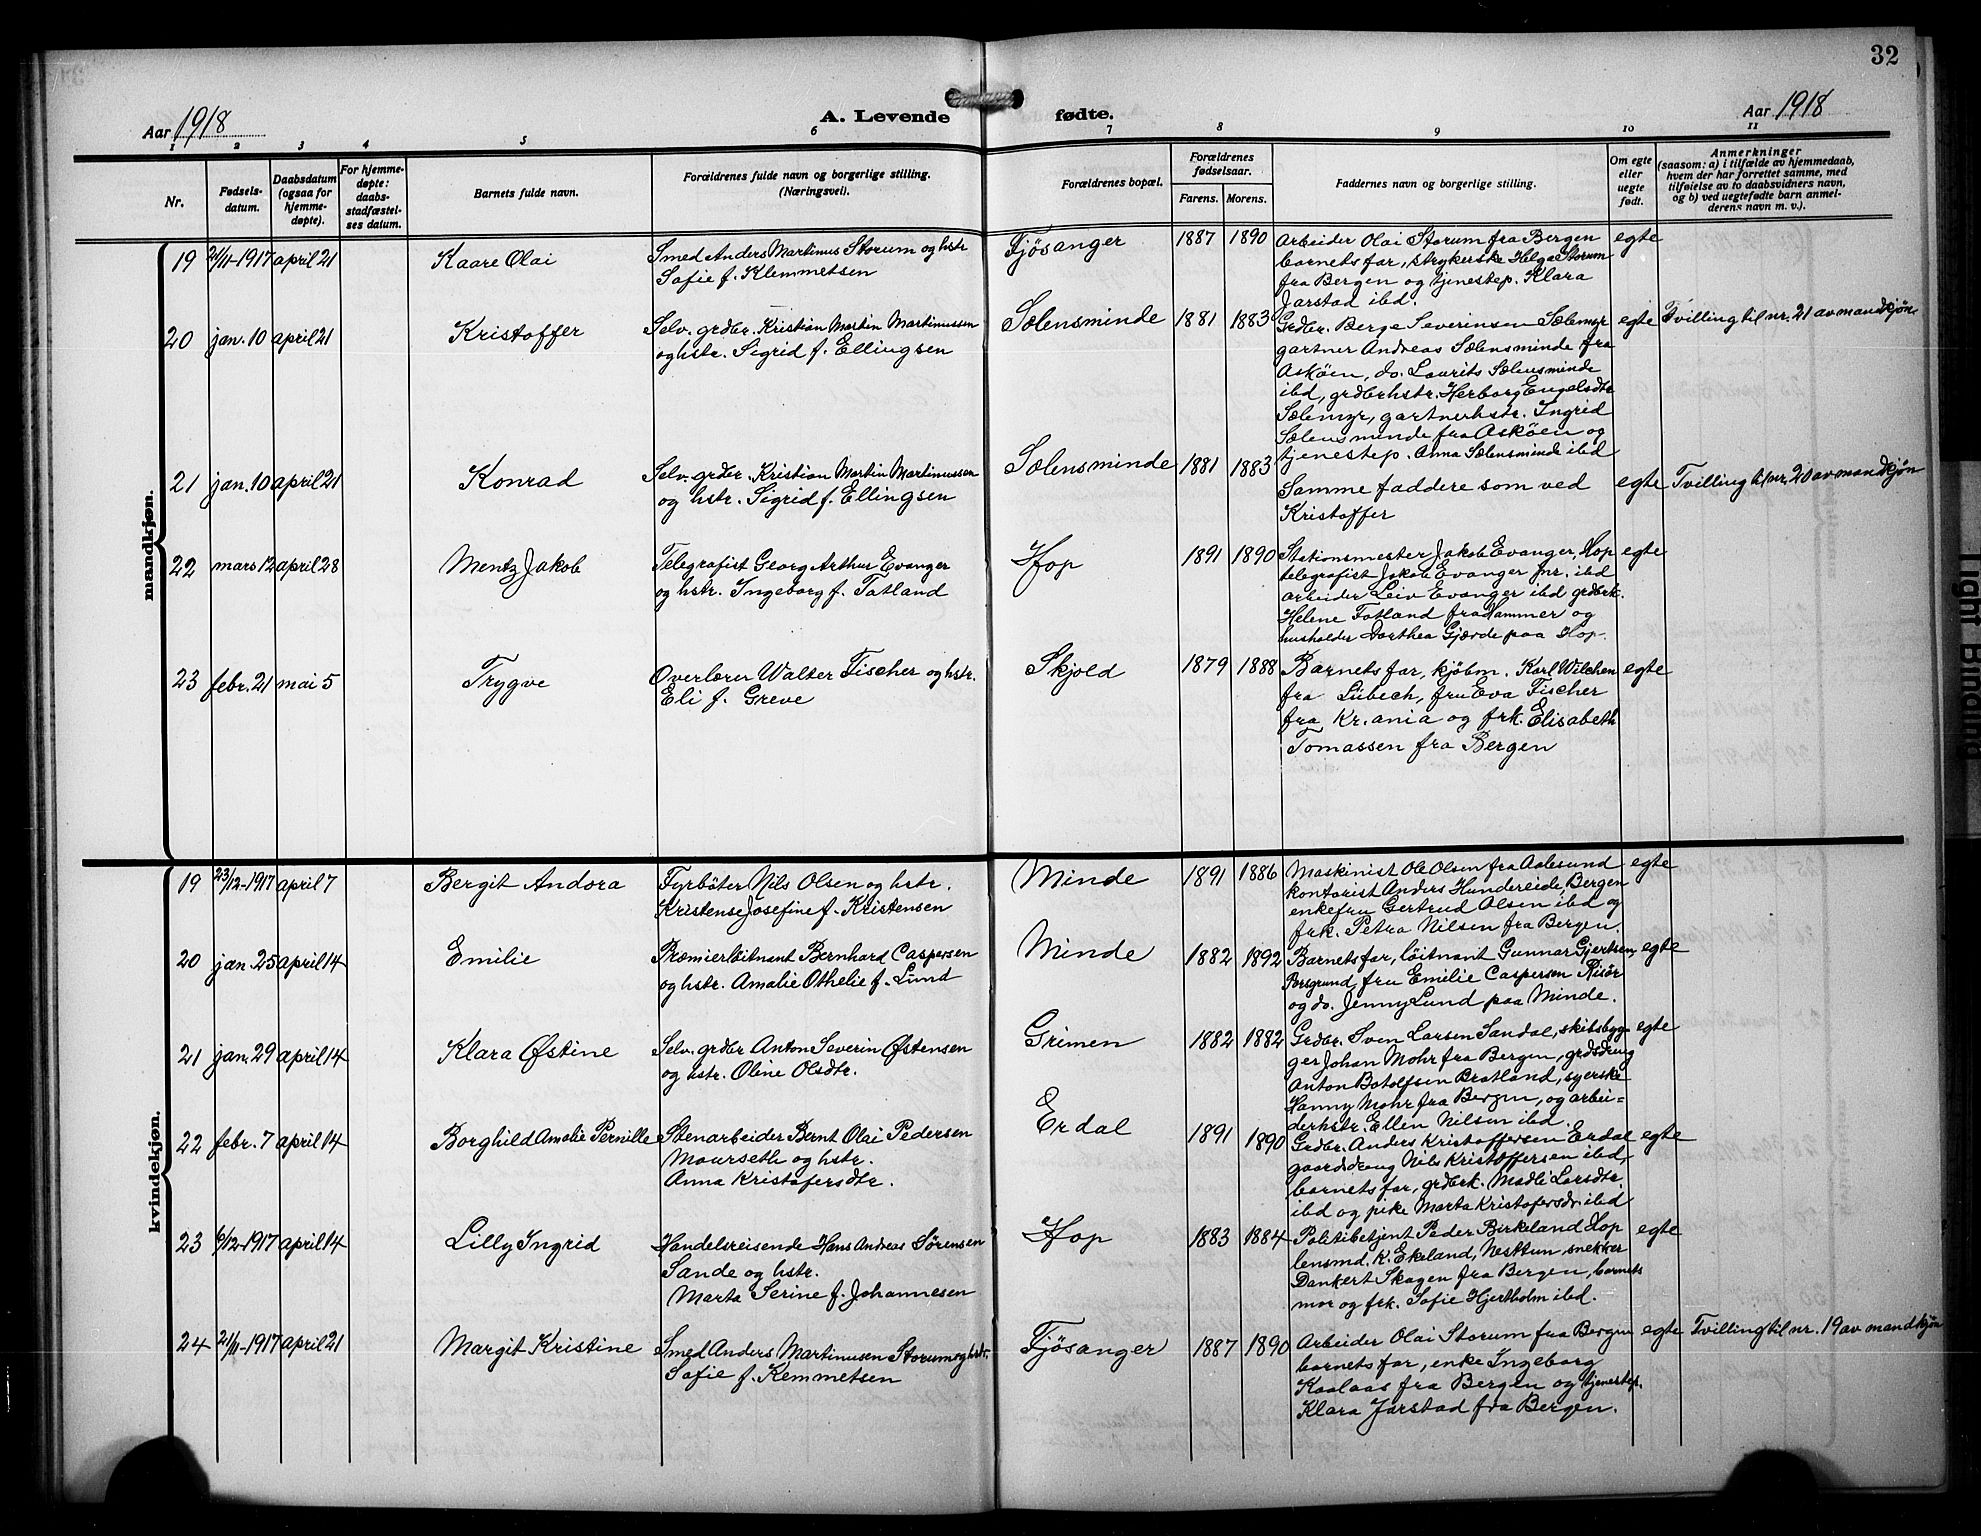 32
Aar 1918
A. Levende fødte.
Aar 1918
1 2 3 4 5 6 7 8 9 10 11
Nr.
Fødsels-
datum.
Daabsdatum
(ogsaa for
hjemme-
døpte).
For hjemme-
døpte:
daabs-
stadfæstel-
ses datum.
Barnets fulde navn.
Forældrenes fulde navn og borgerlige stilling.
(Næringsvei).
Forældrenes bopæl.
Forældrenes
fødselsaar.
Farens. Morens.
Faddernes navn og borgerlige stilling.
Om egte
eller
uegte
født.
Anmerkninger
(saasom: a) i tilfælde av hjemmedaab,
hvem der har forrettet samme, med
tilføielse av to daabsvidners navn,
og b) ved uegtefødte barn anmel-
derens navn m. v.).
mandkjøn.
19 21/11-1917 april 21 Kaare Olai
Smed Anders Martinus Storum og hstr
Sofie f. Klemmetsen
Fjøsanger 1887 1890
Arbeider Olai Storum fra Bergen
barnets far, strykerske Helga Storum
fra Bergen og tjenestep. Klara
Jarstad ibd.
egte
20 jan. 10 april 21 Kristoffer
Selv. grdbr. Kristian Martin Martinussen
og hstr. Sigrid f. Ellingsen
Sælensminde 1881 1883
Grdbr. Berge Severinsen Sælemyr
gartner Andreas Sælensminde fra
Askøen, do. Laurits Sælensminde
ibd, grdbrhstr. Herborg Engelsdtr
Sælemyr, gartnerhstr. Ingrid
Sælensminde fra Askøen og
tjenestep. Anna Sælensminde ibd
egte Tvilling til nr. 21 av mandkjøn
21 jan. 10 april 21 Konrad
Selv. grdbr. Kristian Martin Martinussen
og hstr. Sigrid f. Ellingsen
Sælensminde 1881 1883
Samme faddere som ved
Kristoffer
egte Tvilling til nr. 20 av mandkjøn
22 mars 12 april 28 Mentz Jakob
Telegrafist Georg Arthur Evanger
og hstr. Ingeborg f. Totland
Hop 1891 1890
Stationsmester Jakob Evanger, Hop
telegrafist Jakob Evanger jnr. ibd
arbeider Leiv Evanger ibd grdbrk.
Helene Totland fra Hammer og
husholder Dorthea Gjærde paa Hop.
egte
23 febr. 21 mai 5 Trygve
Overlærer Walter Fischer og hstr.
Eli f. Greve
Skjold 1879 1888
Barnets far, kjøbm. Karl Wilchen
fra Lübech, fru Eva Fischer
fra Kr.ania og frk. Elisabeth
Tomassen fra Bergen
egte
kvindekjøn.
19 23/12-1917 april 7 Bergit Andora
Fyrbøter Nils Olsen og hstr.
Kristense Josefine f. Kristensen
Minde 1891 1886
Maskinist Ole Olsen fra Aalesund
kontorist Anders Hundereide, Bergen
enkefru Gertrud Olsen ibd og
frk. Petra Nilsen fra Bergen.
egte
20 jan. 25 april 14 Emilie
Præmierløitnant Bernhard Caspersen
og hstr. Amalie Othelie f. Lund
Minde 1882 1892
Barnets far, løitnant Gunnar Gjertsen,
Porsgrund, fru Emilie Caspersen Risør
og do. Jenny Lund paa Minde.
egte
21 jan. 29 april 14 Klara Østine
Selv. grdbr Anton Severin Østensen
og hstr. Oline Olsdtr.
Grimen 1882 1882
Grdbr. Sven Larsen Sandal, skibsbyg-
ger Johan Mohr fra Bergen, grdsdreng
Anton Botolfsen Bratland, syerske
Hanny Mohr fra Bergen, og arbei=
derhstr. Ellen Nilsen ibd.
egte
22 febr. 7 april 14 Borghild Amalie Pernille
Stenarbeider Bernt Olai Pedersen
Maurseth og hstr.
Anna Kristofersdtr.
Erdal 1891 1890
Grdbr. Anders Kristoffersen Erdal
gaardsdreng Nils Kristoffersen ibd,
barnets far, grdbrk. Madli Larsdtr.
ibd og pike Marta Kristofersdr. ibd
egte
23 6/12-1917 april 14 Lilly Ingrid
Handelsreisende Hans Andreas Sørensen
Sande og hstr.
Marta Serine f. Johannesen
Hop 1883 1884
Politibetjent Peder Birkeland Hop
lensmd. K. Ekeland, Nesttun snekker
Dankert Skagen fra Bergen, barnets
mor og frk. Sofie Hjertholm ibd.
egte
24 21/11-1917 april 21 Margit Kristine
Smed Anders Martinusen Storum og hstr.
Sofie f. Kemmetsen
Fjøsanger 1887 1890
Arbeider Olai Storum fra Bergen
barnets far, enke Ingeborg
Kaalaas fra Bergen og tjenestep.
Klara Jarstad fra Bergen.
egte Tvilling til nr. 19 av mandkjøn
Tight Binding